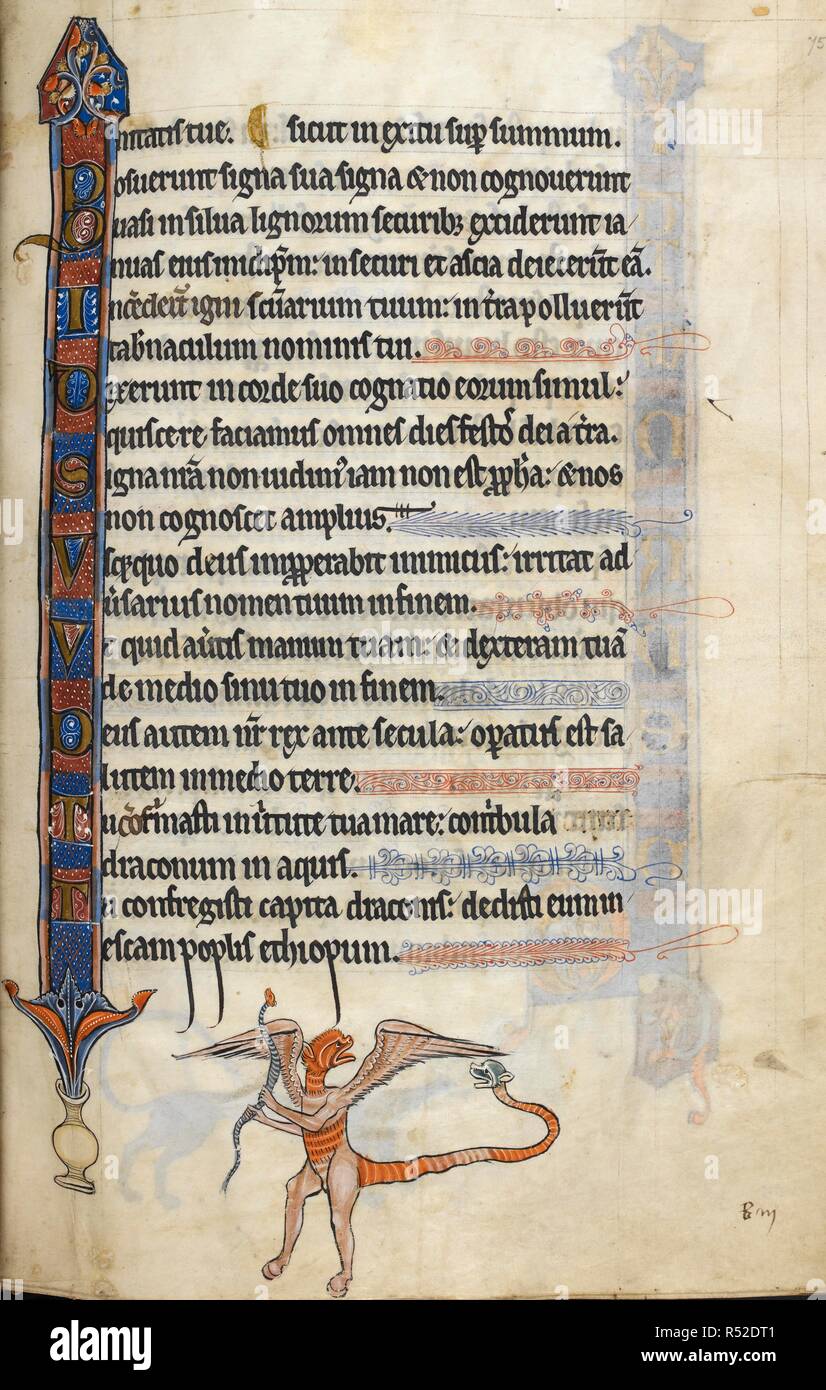 75
nitatis tue: sicut in exitu sup̱ summum.
Posuerunt signa sua signa & non cognouerunt
Quasi in silua lignorum securibꝫ exciderunt ia
nuas eius in idip̄m: in securi et ascia deiecerūt eā.
Incēderūt igni scūarium tuum: in t̄ra polluerūt
tab̄naculum nominis tui.
Dixerunt in corde suo cognatio eorum simul:
quiscere faciamus omnes dies festoˢ dei a t̄ra.
Signa nr̄a non uidimꝰ iam non est ꝓph̄a: & nos
non cognoscet amplius.
Vsq̨quo deus imꝓperabit inimicus: irritat ad
ūsarius nomen tuum in finem.
Vt quid aūtis manum tuam: & dexteram tuā
de medio sinu tuo in finem.
Deus autem nr̄ rex ante secula: op̱atus est sa
lutem in medio terre.
Tu cōfirmasti in ūtute tua mare: cont̄bula
draconum in aquis.
Tu confregisti capita draconis: dedisti eum in
escam pop̄lis ethiopum.
alamy
Image ID: R52DT1
www.alamy.com